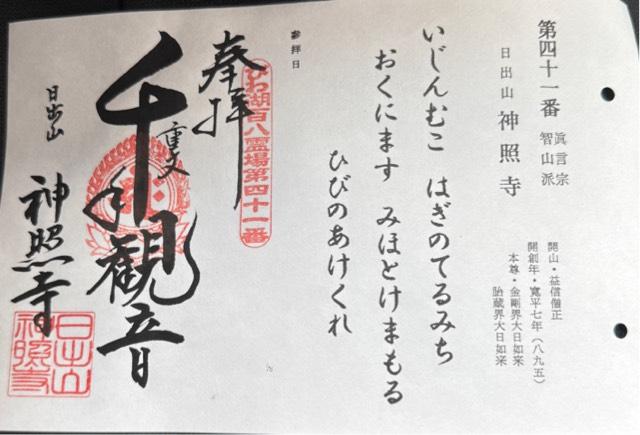 第四十一番
眞言宗
智山派
日出山 神照寺
開山・益信僧正
開創年・寛平七年(八九五)
本尊・金剛界大日如来
胎蔵界大日如来
いじんむこ はぎのてるみち
おくにます みほとけまもる
ひびのあけくれ
参拝日
びわ湖百八霊場第四十一番
奉拝
千手観音
日出山
神照寺
日出山
神照寺